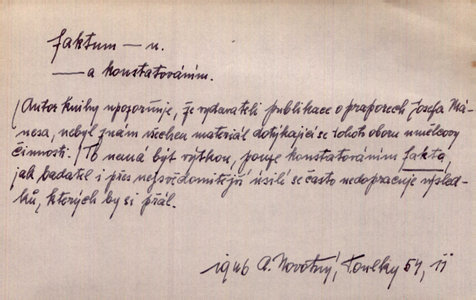 faktum – n.
— a konstatováním.
(Autor knihy upozorňuje, že vydavateli publikace o praporech Josefa Má-
nesa, nebyl znám všechen materiál dotýkající se tohoto oboru umělcovy
činnosti.) To nemá být výtkou, pouze konstatováním fakta,
jak badatel i přes nejsvědomitější úsilí se často nedopracuje výsled-
ků, kterých by si přál.
1946 A. Novotný, Toulky 54, ii